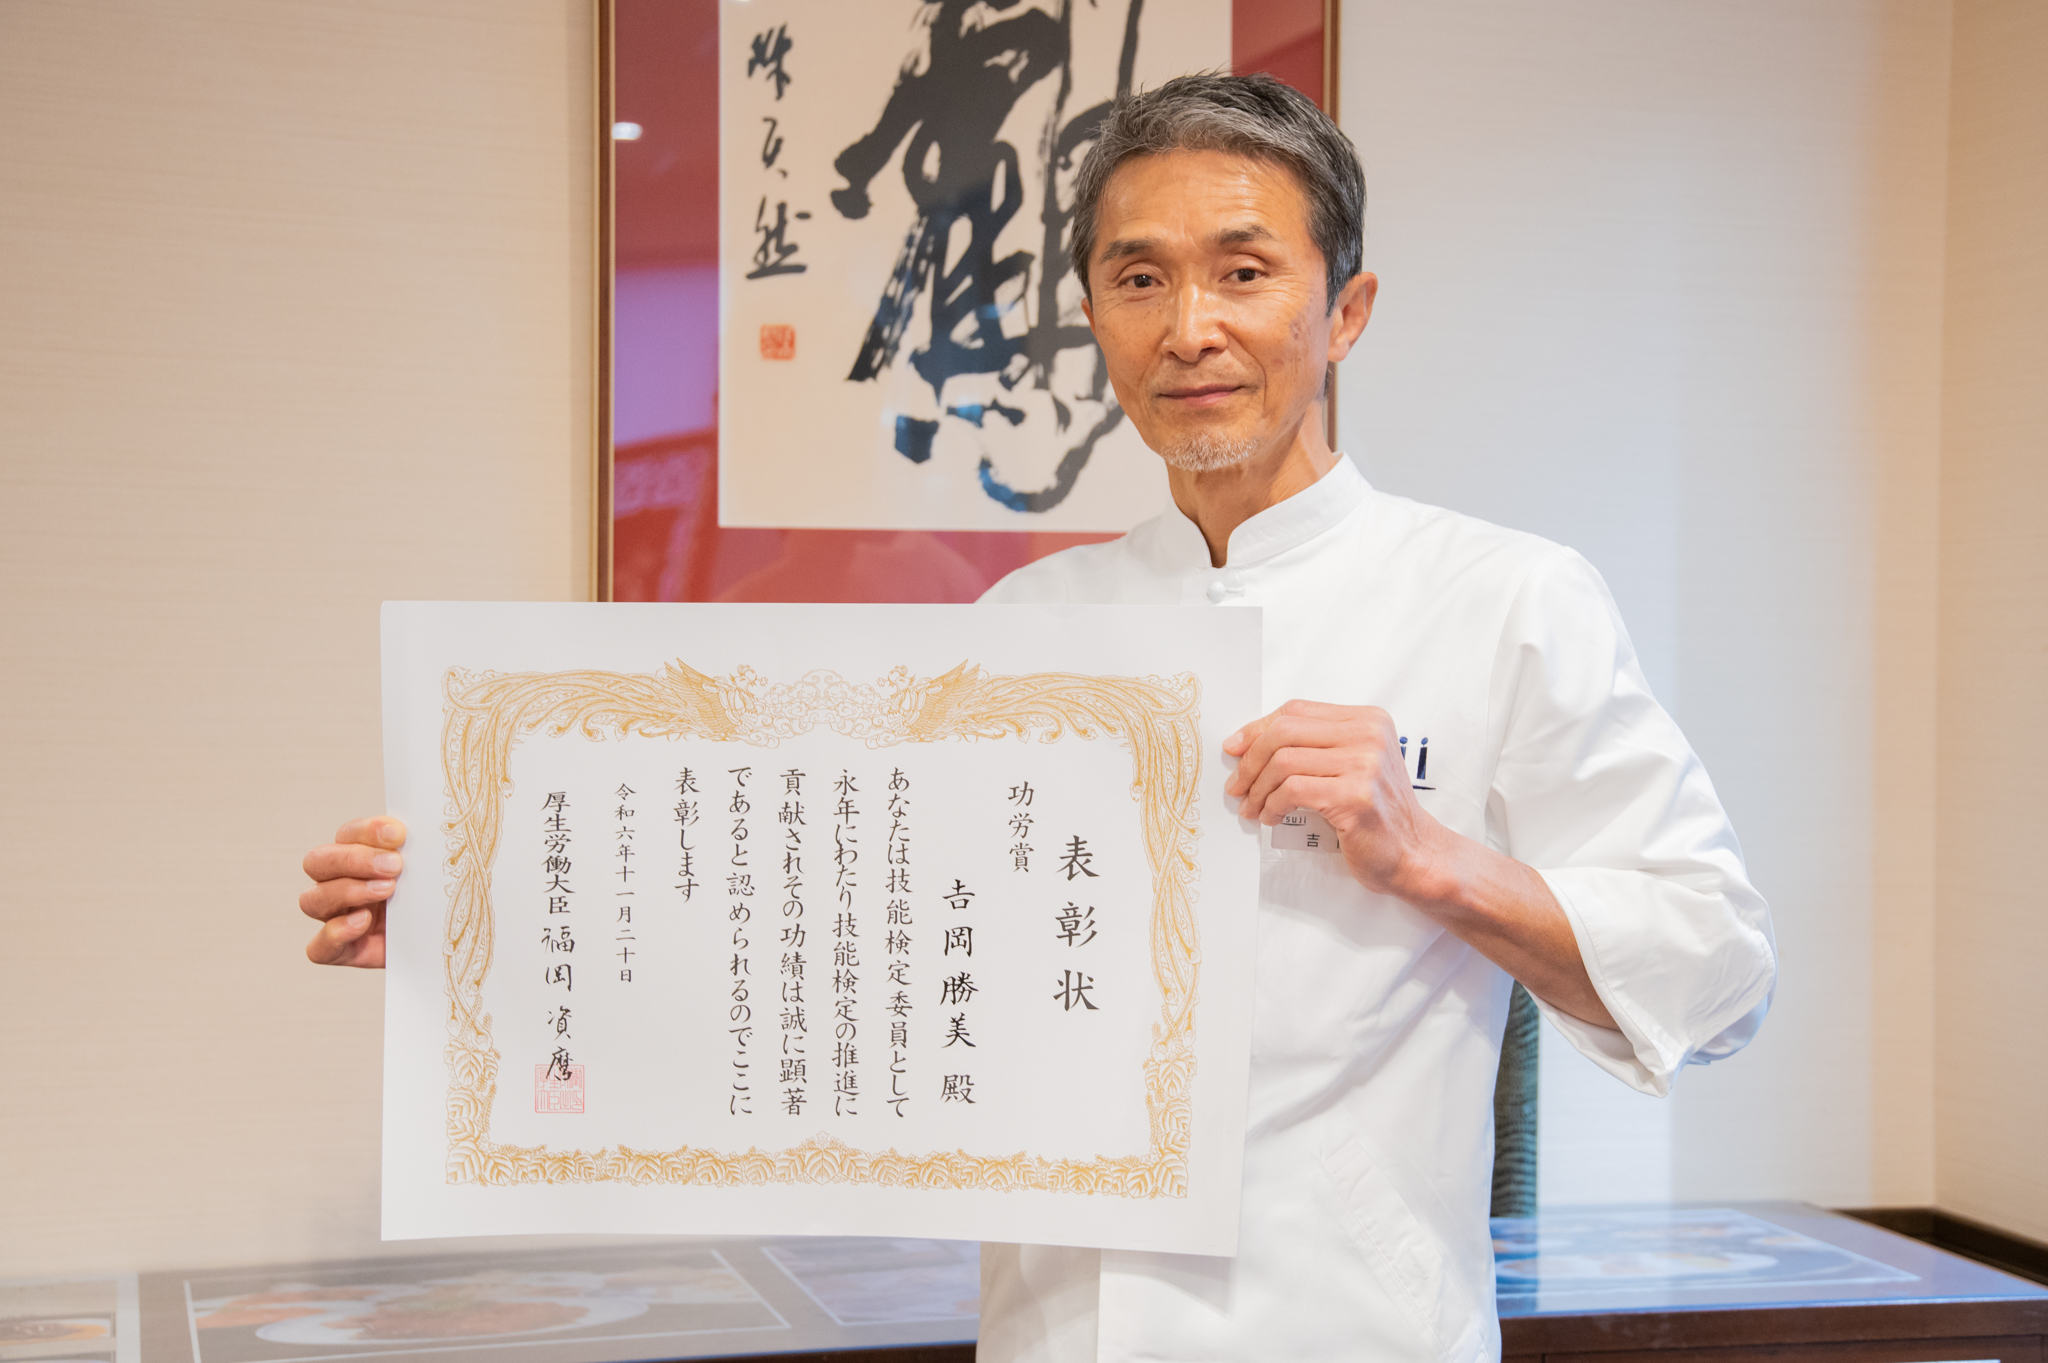 表彰状
功労賞
吉岡勝美 殿
あなたは技能検定委員として
永年にわたり技能検定の推進に
貢献されその功績は誠に顕著
であると認められるのでここに
表彰します
令和六年十一月二十日
厚生労働大臣 福岡資麿
suji
吉